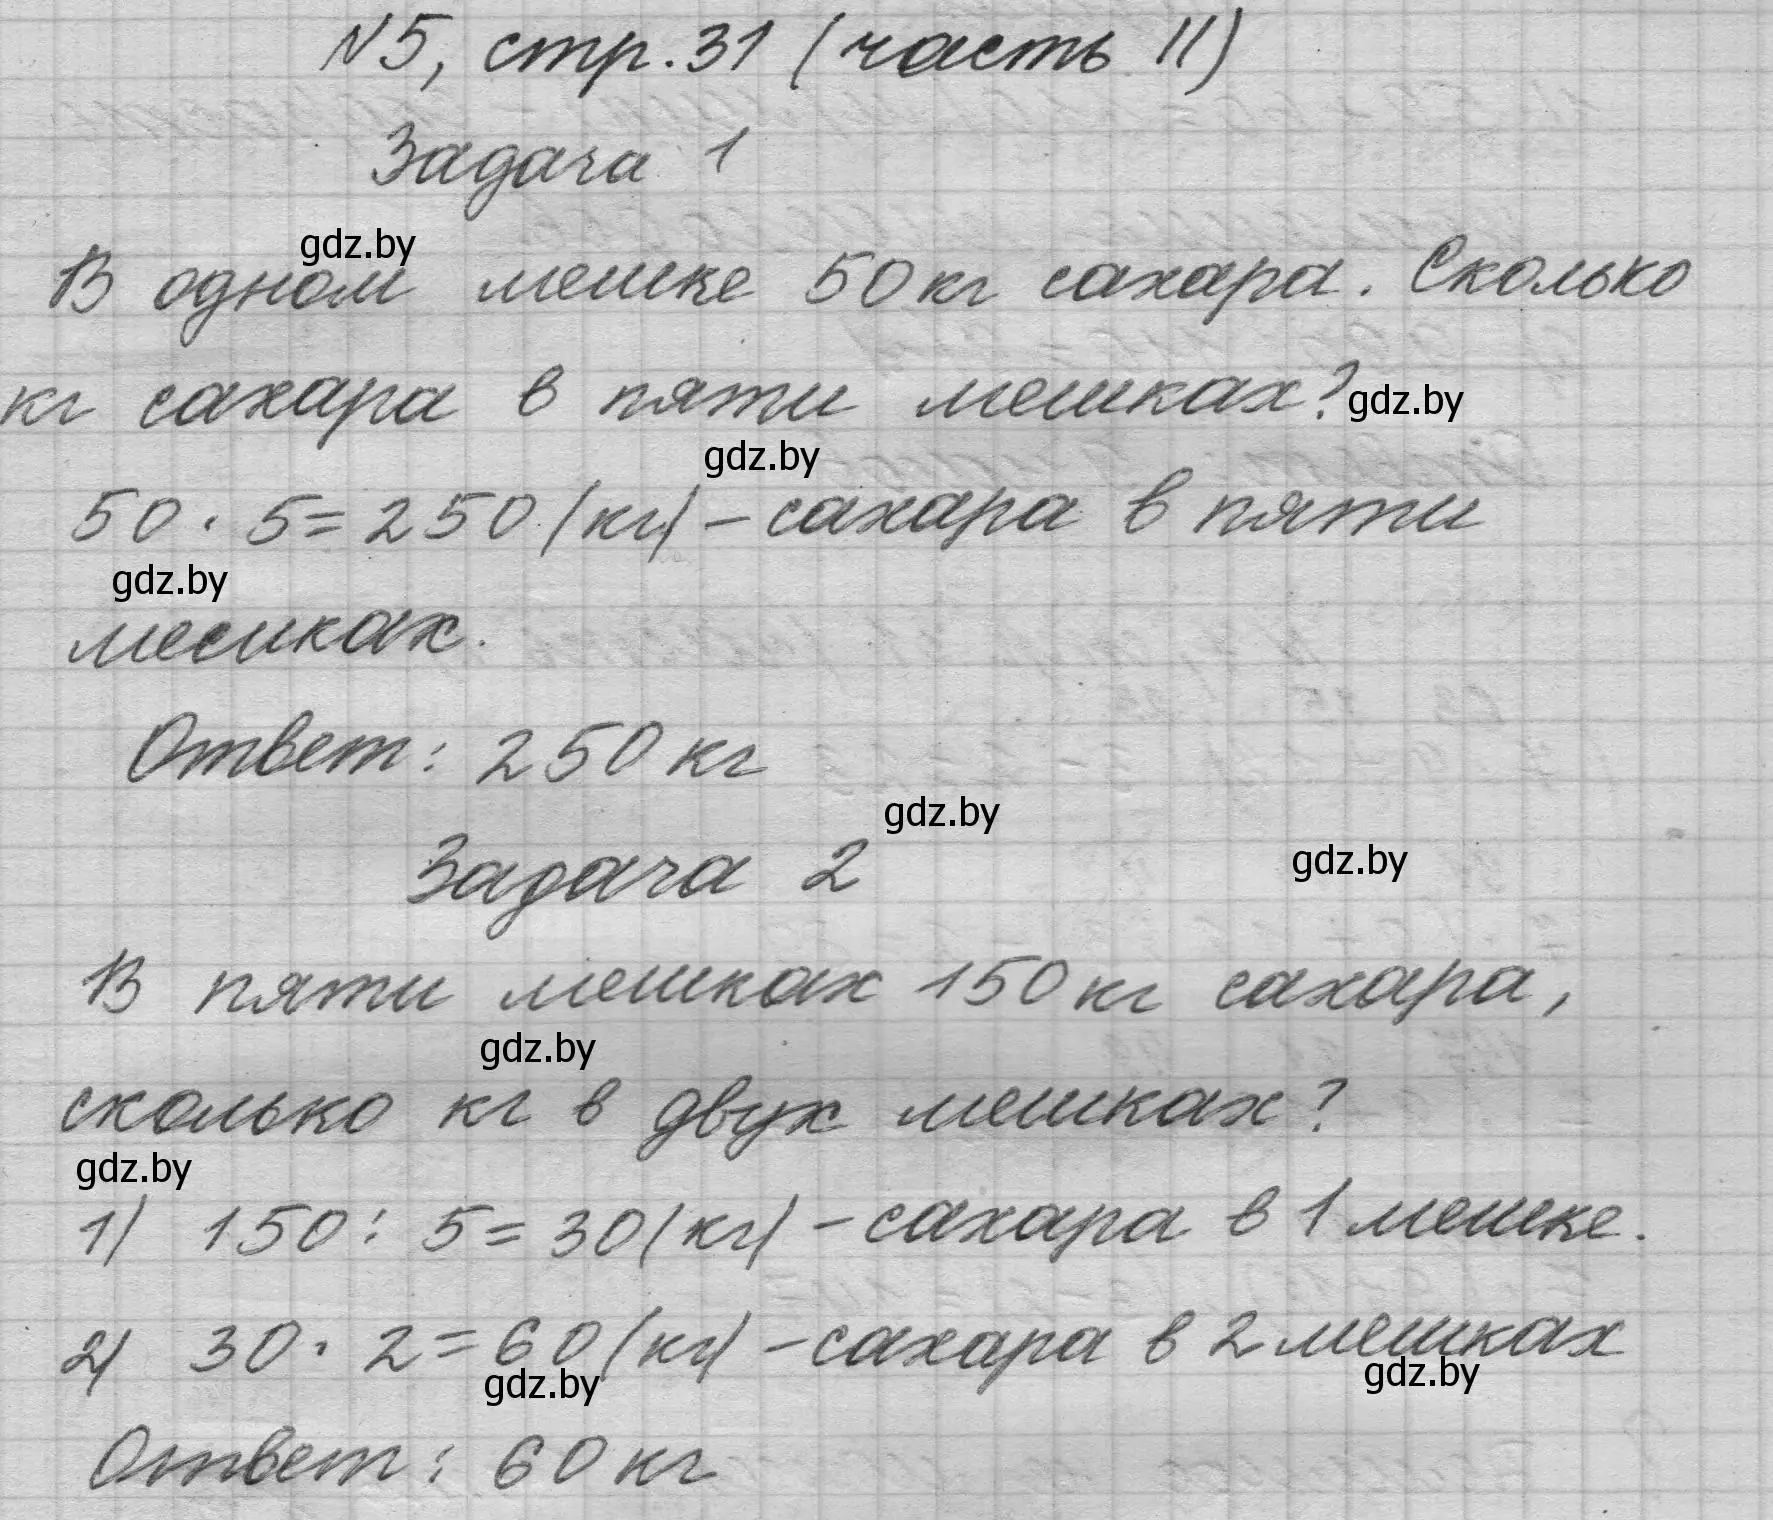 №5, стр.31 (часть II)
Задача 1
gdz.by
В одном мешке 50 кг сахара. Сколько
кг сахара в пяти мешках? gdz.by
gdz.by
50 · 5 = 250 (кг) – сахара в пяти
gdz.by
мешках.
Ответ: 250 кг
gdz.by
Задача 2
gdz.by
В пяти мешках 150 кг сахара,
gdz.by
сколько кг в двух мешках?
gdz.by
1) 150 : 5 = 30 (кг) – сахара в 1 мешке.
2) 30 · 2 = 60 (кг) – сахара в 2 мешках
gdz.by gdz.by
Ответ: 60 кг